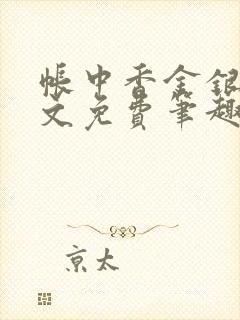 帐中香金银
文免费笔趣
京太